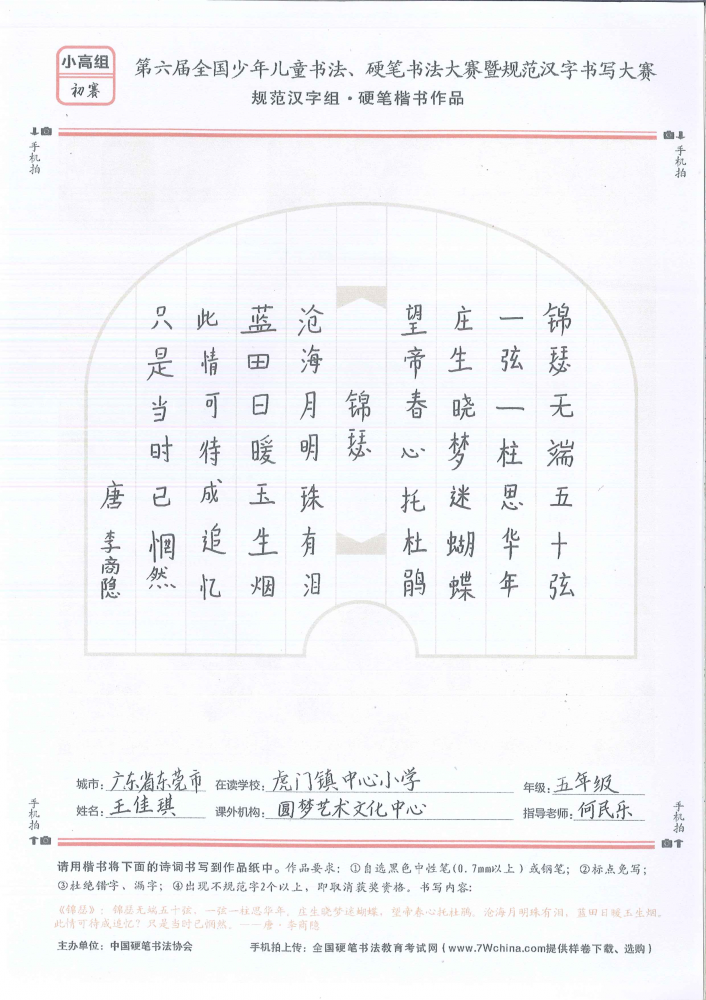 小高组
初赛
第六届全国少年儿童书法、硬笔书法大赛暨规范汉字书写大赛
规范汉字组·硬笔楷书作品
手机拍
手机拍
锦瑟无端五十弦
一弦一柱思华年
庄生晓梦迷蝴蝶
望帝春心托杜鹃
锦瑟
沧海月明珠有泪
蓝田日暖玉生烟
此情可待成追忆
只是当时已惘然
唐 李商隐
城市：广东省东莞市 在读学校：虎门镇中心小学 年级：五年级
姓名：王佳琪 课外机构：圆梦艺术文化中心 指导老师：何民乐
手机拍
手机拍
请用楷书将下面的诗词书写到作品纸中。作品要求：①自选黑色中性笔(0.7mm以上)或钢笔；②标点免写；
③杜绝错字、漏字；④出现不规范字2个以上，即取消获奖资格。书写内容：
《锦瑟》：锦瑟无端五十弦，一弦一柱思华年。庄生晓梦迷蝴蝶，望帝春心托杜鹃。沧海月明珠有泪，蓝田日暖玉生烟。
此情可待成追忆？只是当时已惘然。——唐·李商隐
主办单位：中国硬笔书法协会 手机拍上传：全国硬笔书法教育考试网（www.7Wchina.com提供样卷下载、选购）